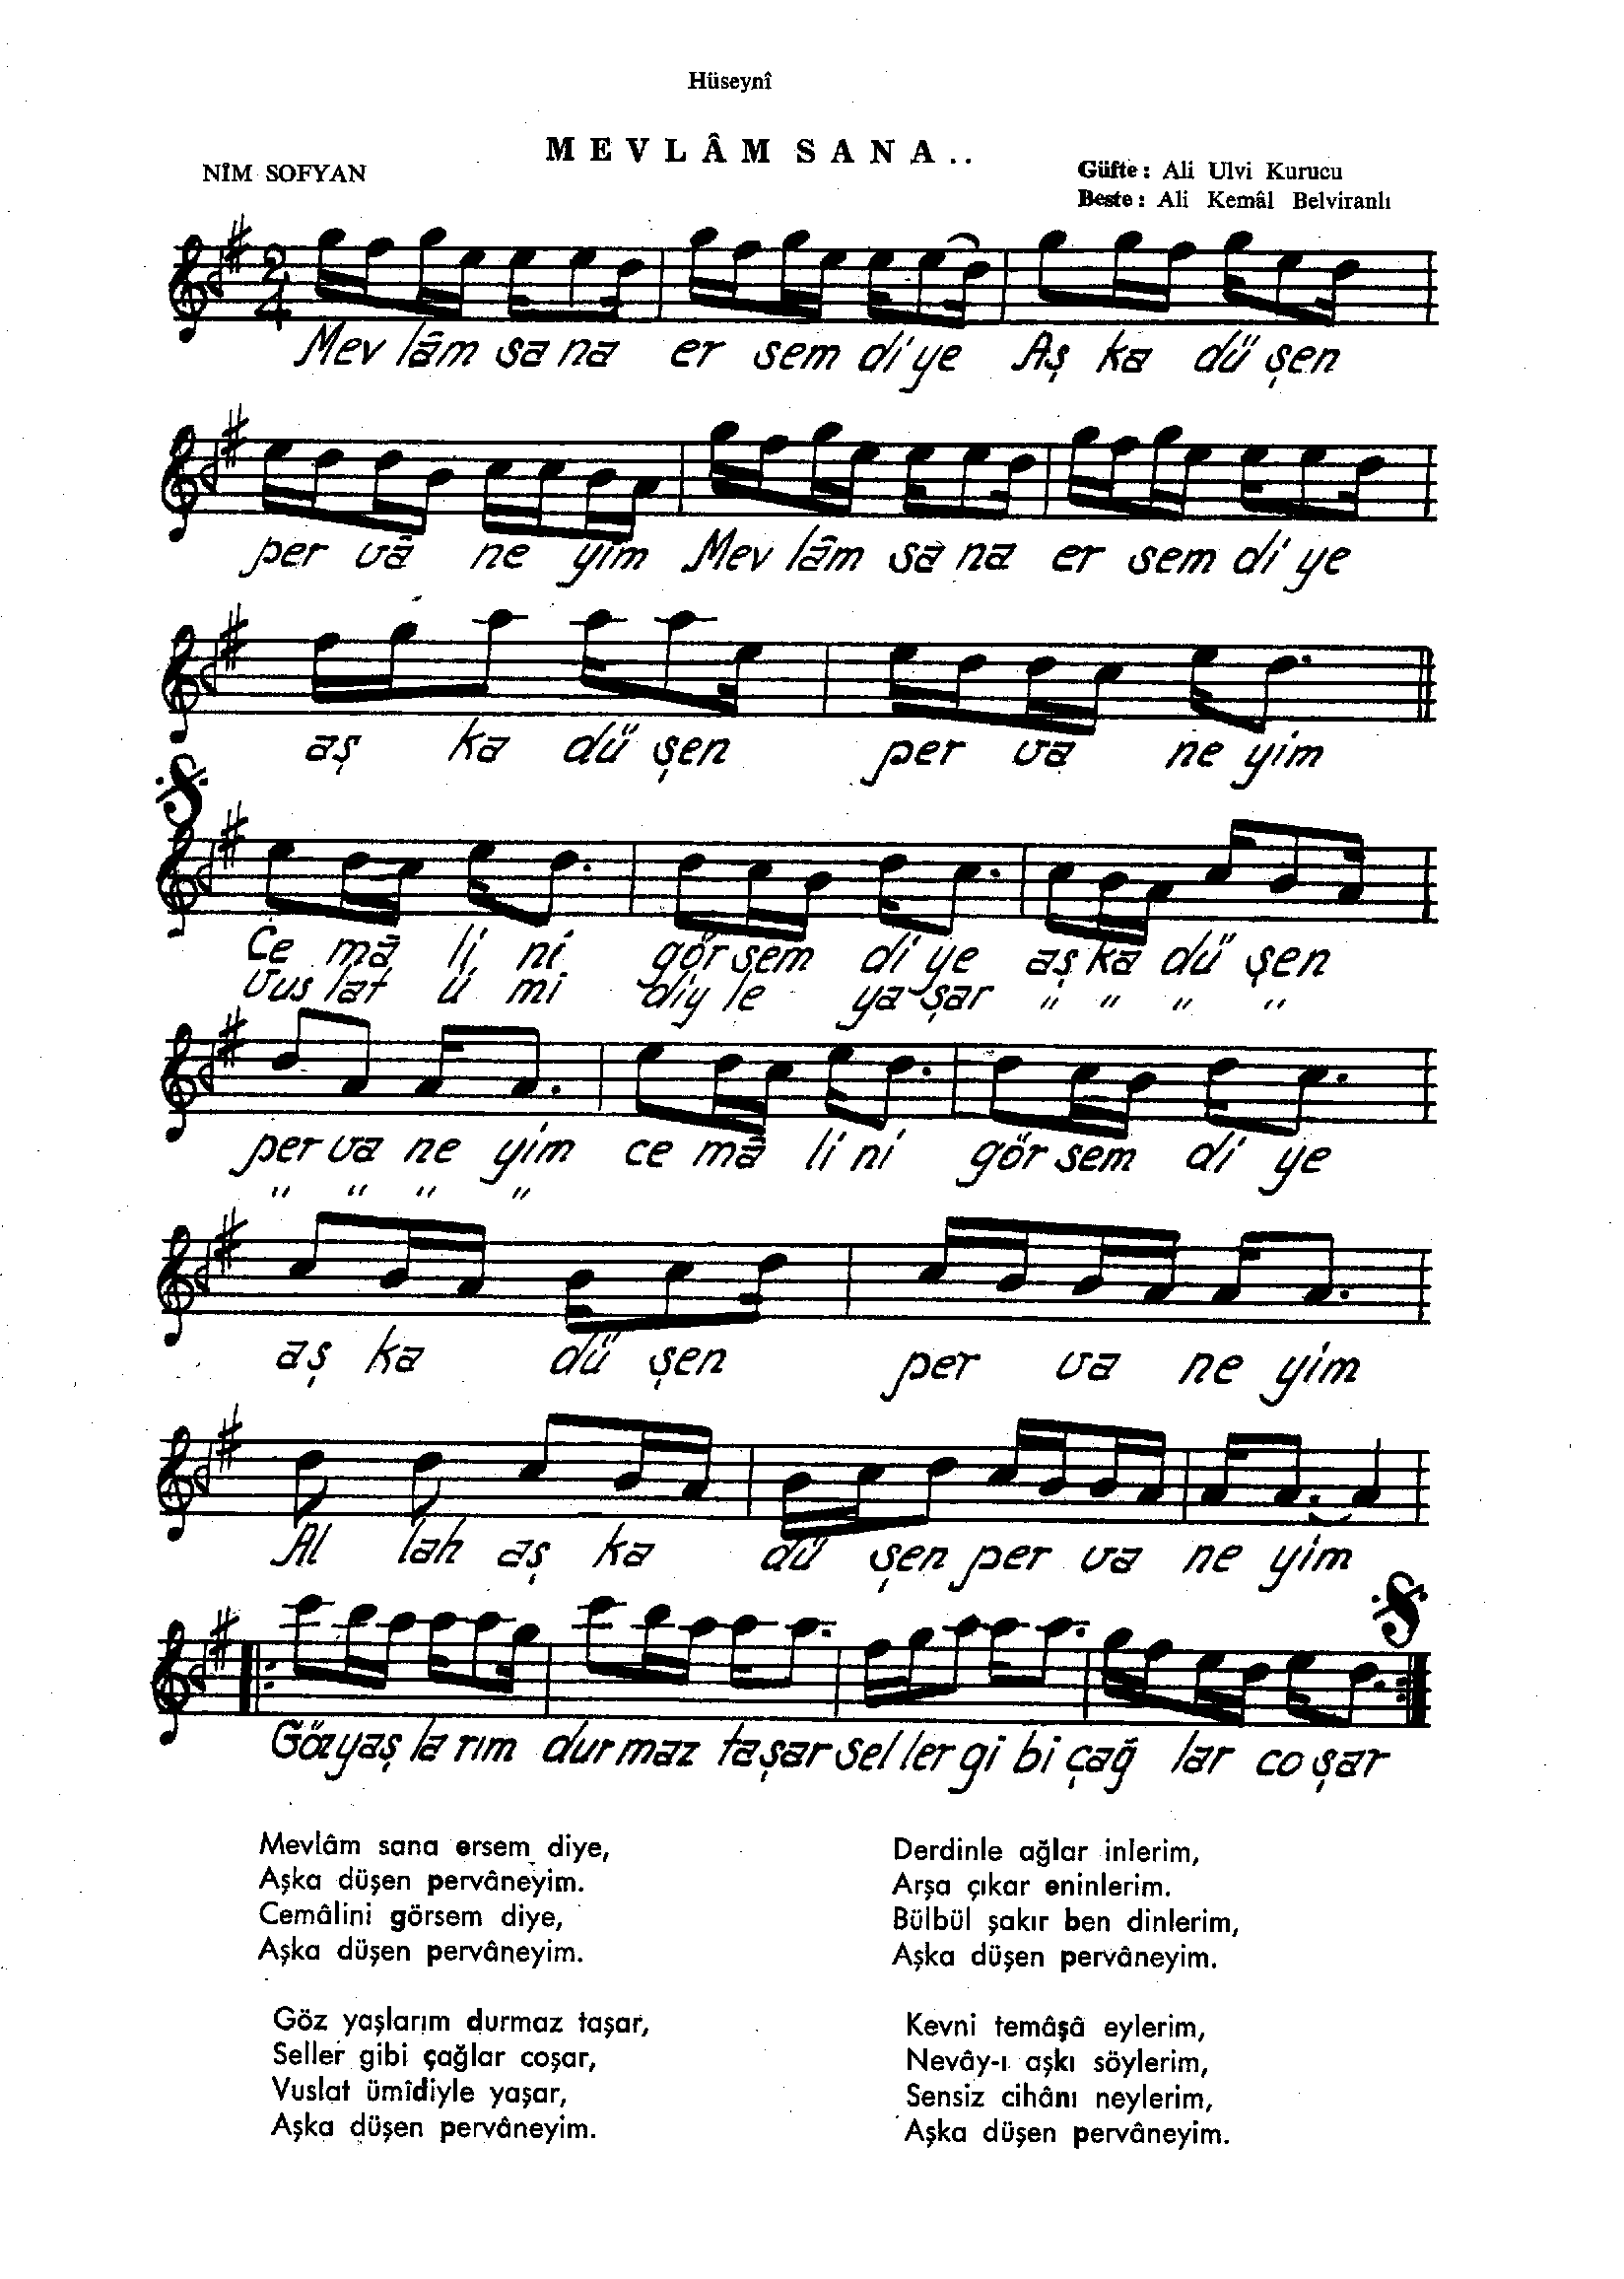 Hüseynî
MEVLÂM SANA..
NİM SOFYAN
Güfte : Ali Ulvi Kurucu
Beste : Ali Kemâl Belviranlı
2/4
Mev lâm sa na er sem di ye Aş ka dü şen
per vâ ne yim Mev lâm sa na er sem di ye
aş ka dü şen per va ne yim
Ce mâ li ni gör sem di ye aş ka dü şen
vus lat ü mi diy le ya şar " " " "
per va ne yim ce mâ li ni gör sem di ye
" " " "
aş ka dü şen per va ne yim
Al lah aş ka dü şen per va ne yim
Göz yaş la rım dur maz ta şar sel ler gi bi çağ lar co şar
Mevlâm sana ersem diye,
Aşka düşen pervâneyim.
Cemâlini görsem diye,
Aşka düşen pervâneyim.
Göz yaşlarım durmaz taşar,
Seller gibi çağlar coşar,
Vuslat ümîdiyle yaşar,
Aşka düşen pervâneyim.
Derdinle ağlar inlerim,
Arşa çıkar eninlerim.
Bülbül şakır ben dinlerim,
Aşka düşen pervâneyim.
Kevni temâşâ eylerim,
Nevây-ı aşkı söylerim,
Sensiz cihânı neylerim,
Aşka düşen pervâneyim.